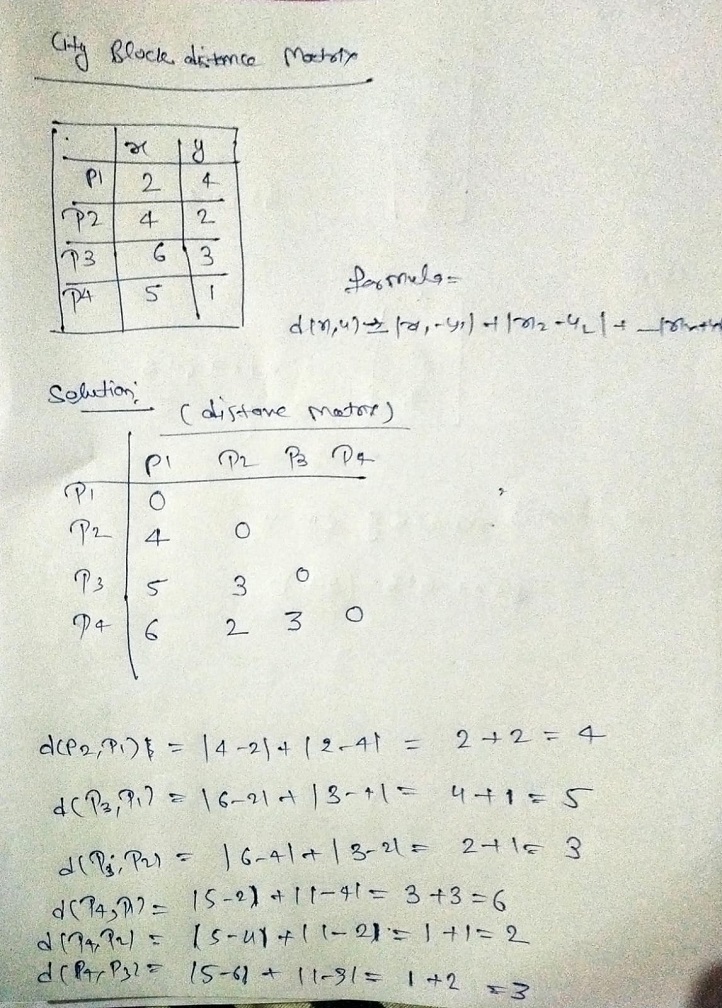 City Block distance Matrix
: x y
P1 2 4
P2 4 2
P3 6 3
P4 5 1
formula =
Solution:
(distane matrix)
P1 P2 P3 P4
P1 0
P2 4 0
P3 5 3 0
P4 6 2 3 0
d(P2,P1) = |4-2|+|2-4| = 2+2 = 4
d(P3,P1) = |6-2|+|3-4| = 4+1 = 5
d(P3,P2) = |6-4|+|3-2| = 2+1 = 3
d(P4,P1) = |5-2|+|1-4| = 3+3 = 6
d(P4,P2) = |5-4|+|1-2| = 1+1 = 2
d(P4,P3) = |5-6|+|1-3| = 1+2 = 3